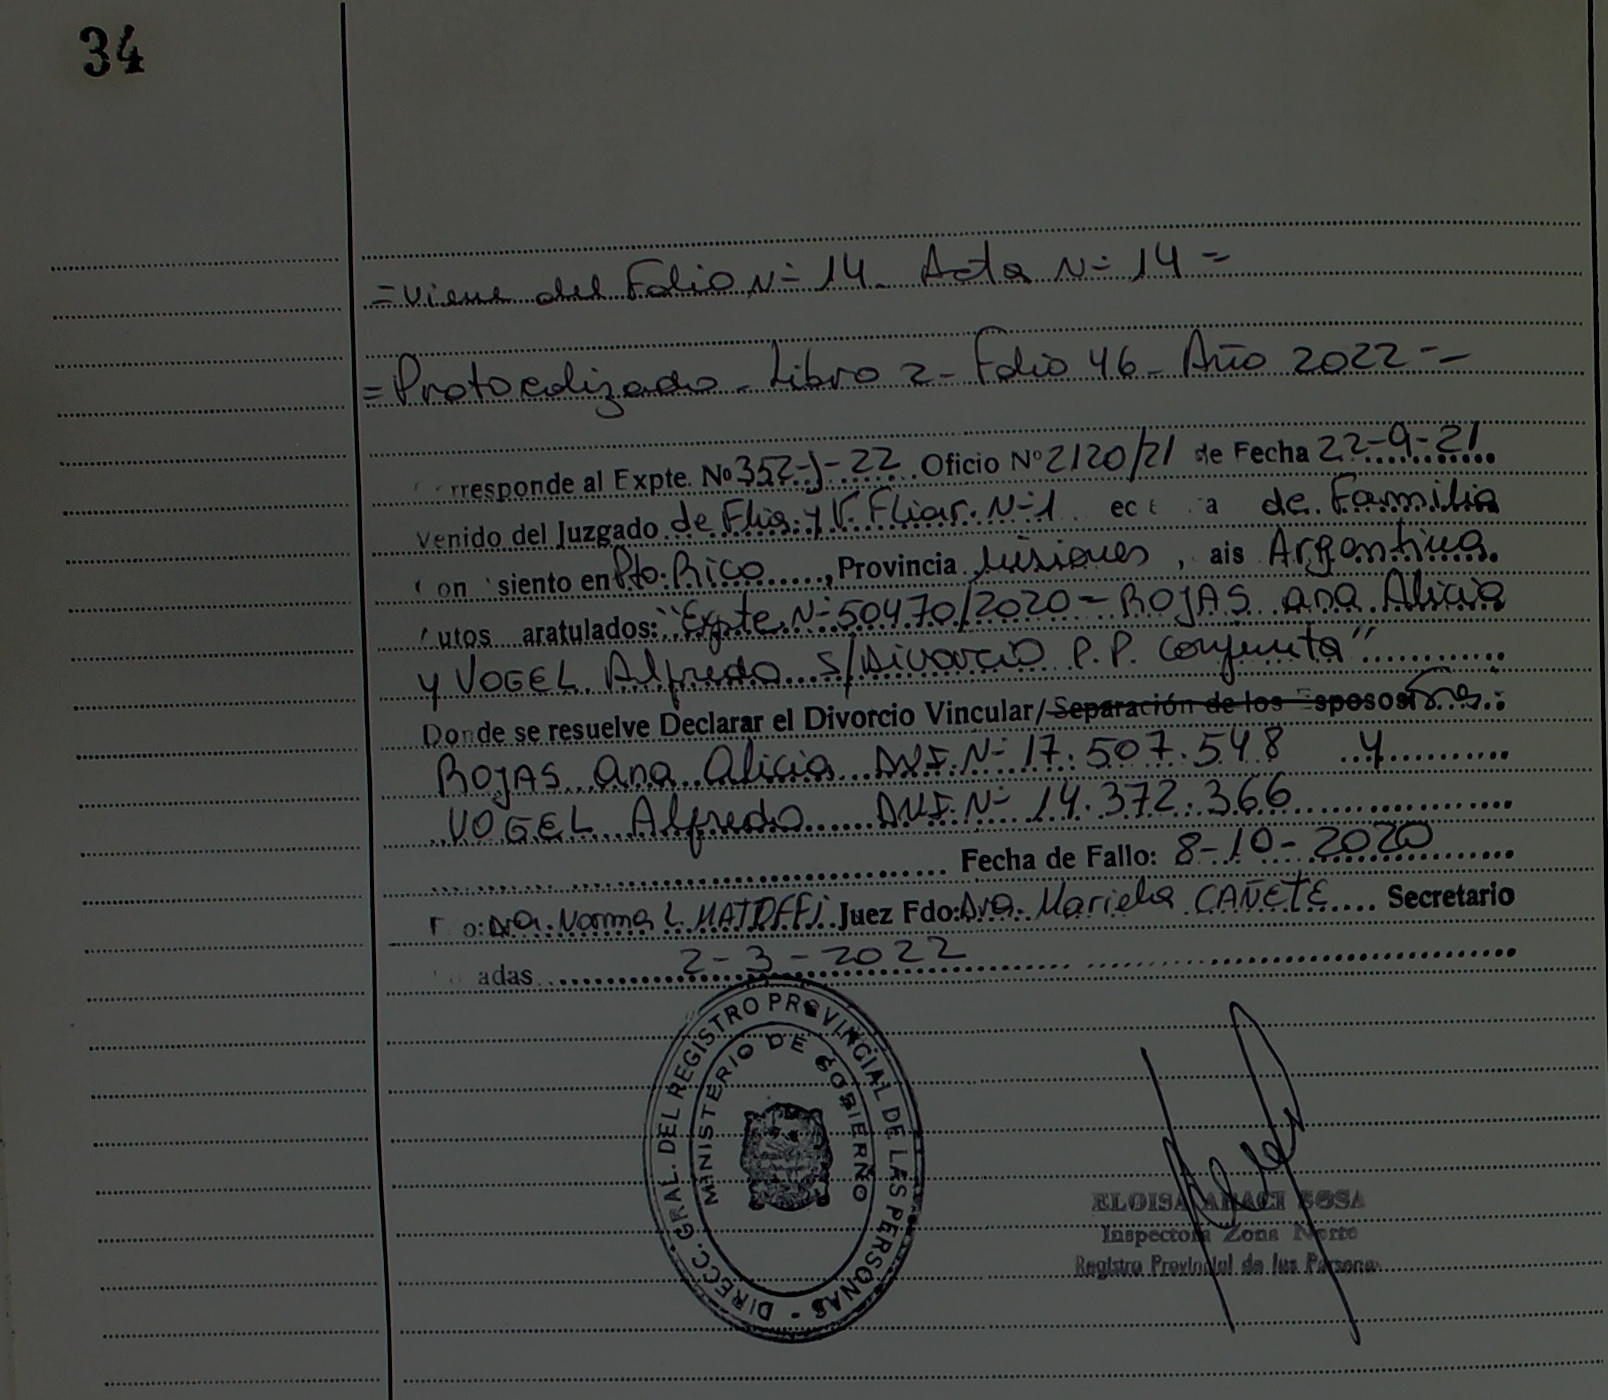 34
= Viene del Folio N= 14 - Acta N= 14 =
= Protocolizado - Libro 2 - Folio 46 - Año 2022 --
rresponde al Expte. Nº 352-J-22 Oficio Nº 2120/21 de Fecha 22-9-21
venido del Juzgado de Flia. y V. Fliar. N=1 ec a de Familia
on siento en Pto. Rico, Provincia Misiones, ais Argentina.
utos aratulados: "Expte N=50470/2020 = ROJAS Ana Alicia
y VOGEL Alfredo s/Divorcio P.P. Conjunta"
Donde se resuelve Declarar el Divorcio Vincular/Separación de los Esposos:
ROJAS Ana Alicia DNI. N= 17.507.548 y
VOGEL Alfredo DNI. N= 14.372.366
Fecha de Fallo: 8-10-2020
o: Dra. Norma L. Juez Fdo: Dra. Mariela CAÑETE Secretario
adas 2-3-2022
DIRECC. GRAL. DEL REGISTRO PROVINCIAL DE LAS PERSONAS -
MINISTERIO DE GOBIERNO
ELOISA ARACI SOSA
Inspectora Zona Norte
Registro Provincial de las Personas